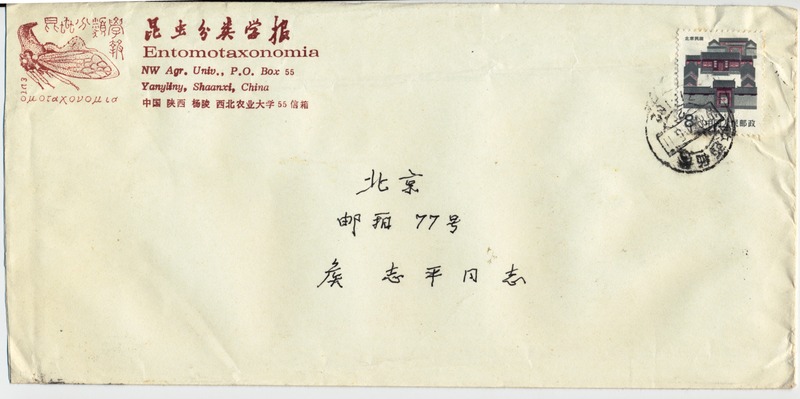 昆虫分類學報
ENTOMOTAXONOMIA
昆虫分类学报
Entomotaxonomia
NW Agr. Univ., P.O. Box 55
Yanyliny, Shaanxi, China
中国 陕西 杨陵 西北农业大学 55 信箱
北京民居
中国人民邮政
北京
邮箱 77号
侯 志平同志